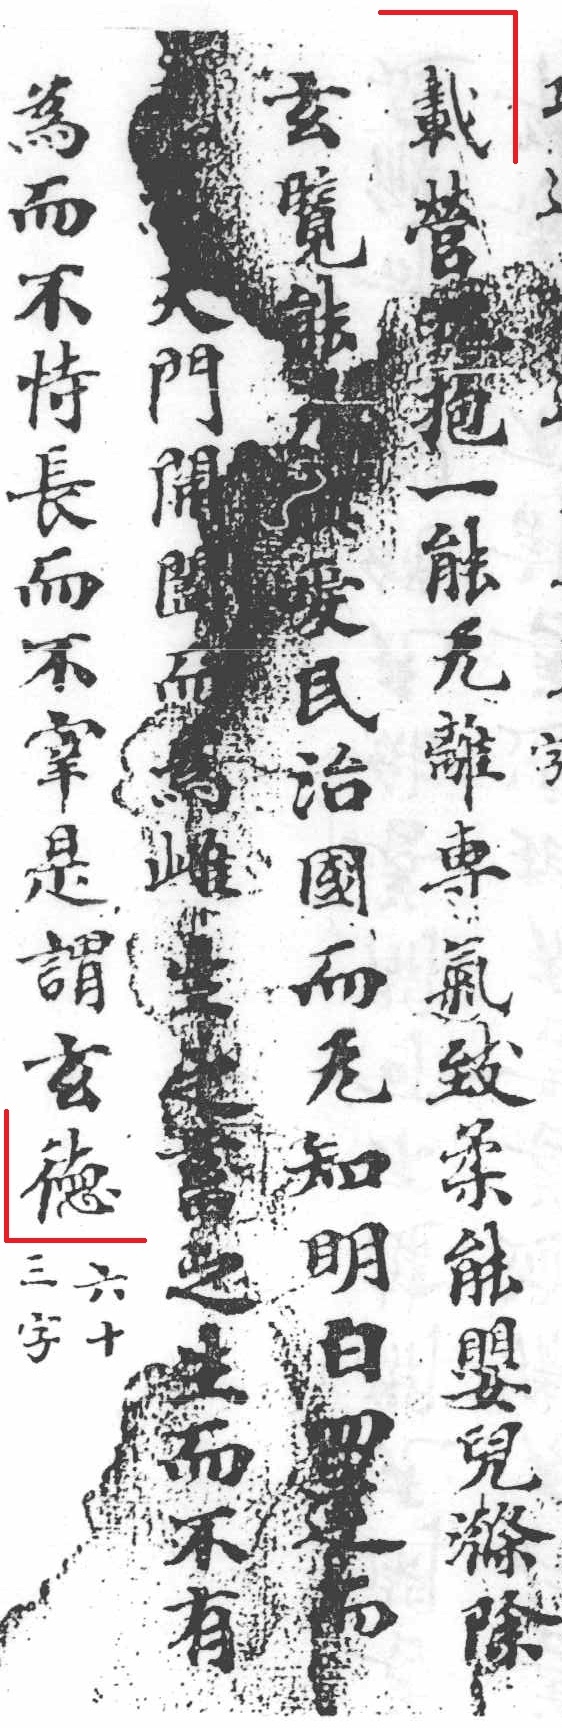 載營魄抱一能无離專氣致柔能嬰兒滌除
玄覽能愛民治國而无知明白四達而
天門開闔而為雌生之畜之生而不有
為而不恃長而不宰是謂玄德
六十
三字